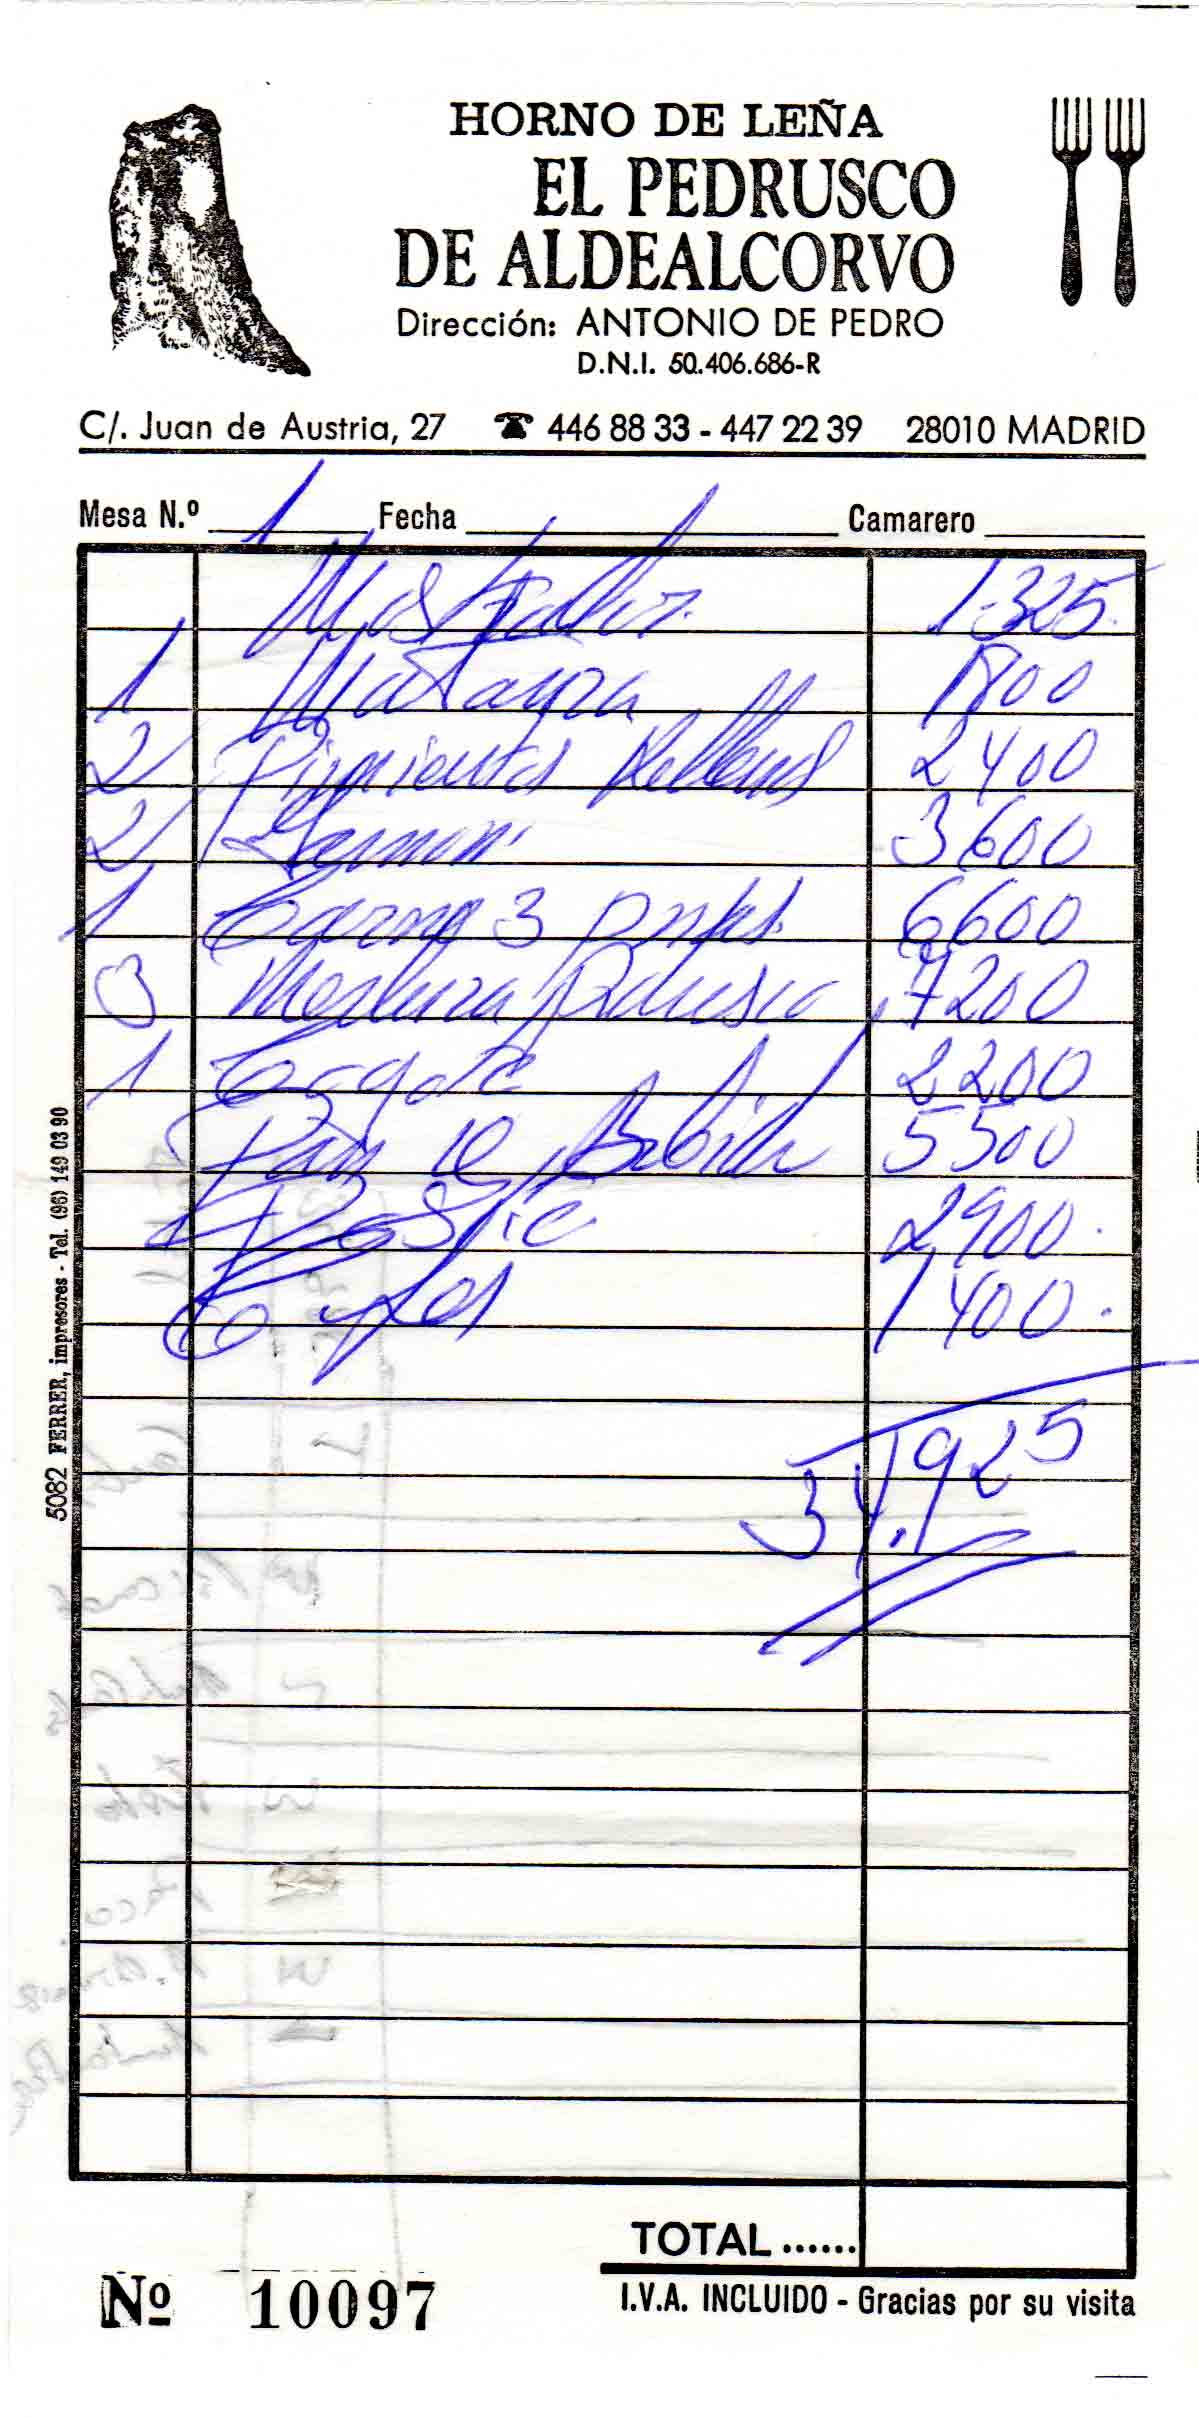 HORNO DE LEÑA
EL PEDRUSCO
DE ALDEALCORVO
Dirección: ANTONIO DE PEDRO
D.N.I. 50.406.686-R
C/. Juan de Austria, 27 ☎ 446 88 33 - 447 22 39 28010 MADRID
Mesa N.º 1 Fecha Camarero
Mostrador 1.325
1 Matanza 1800
2 Pimientos Rellenos 2400
2 Jamon 3600
1 Carne 3 3600
3 Merluza pedrusco 7200
1 2200
Pan Bebida 5500
Postre 2900
Cafes 1400
34.925
TOTAL ......
I.V.A. INCLUIDO - Gracias por su visita
Nº 10097
5082 FERRER, impresores - Tel. (96) 149 03 90